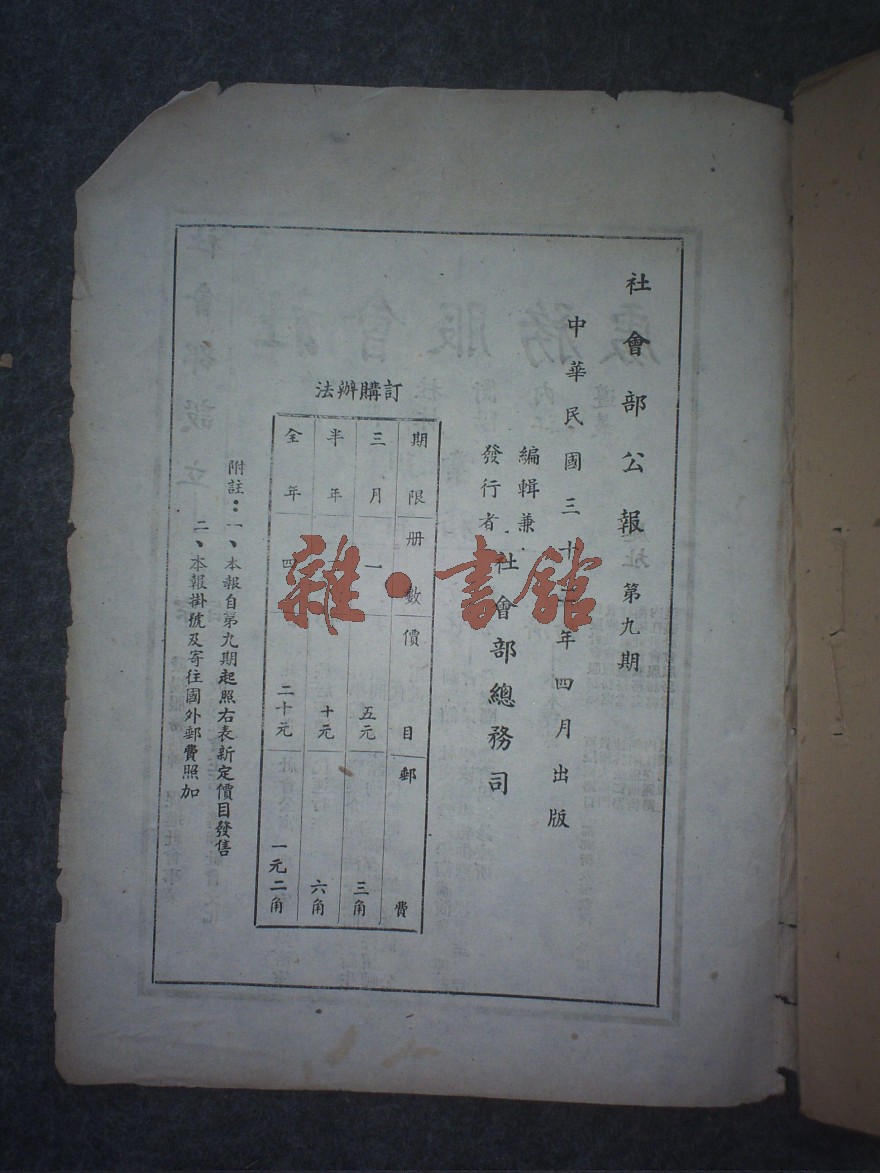 社會部公報第九期
中華民國三十二年四月出版
編輯兼
發行者
社會部總務司
訂購辦法
期限 册數 價目 郵費
三月 一 五元 三角
半年 十元 六角
全年 四 二十元 一元二角
附註：一、本報自第九期起照右表新定價目發售
二、本報掛號及寄往國外郵費照加
雜·書館